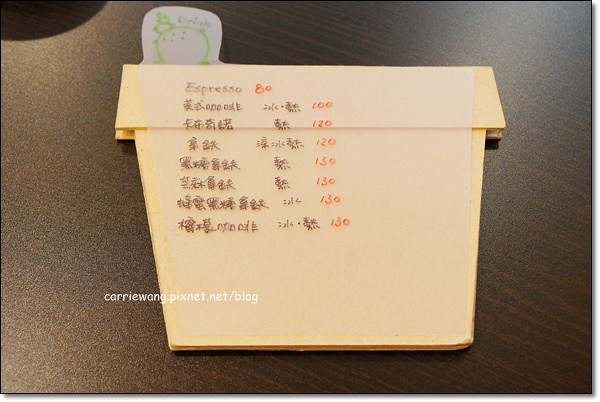 Drink
Espresso 80
美式咖啡 冰.熱 100
卡布奇諾 熱 120
拿鐵 冰熱 120
黑糖拿鐵 熱 130
芝麻拿鐵 熱 130
蜂蜜黑糖拿鐵 冰 130
檸檬咖啡 冰.熱 130
carriewang.pixnet.net/blog